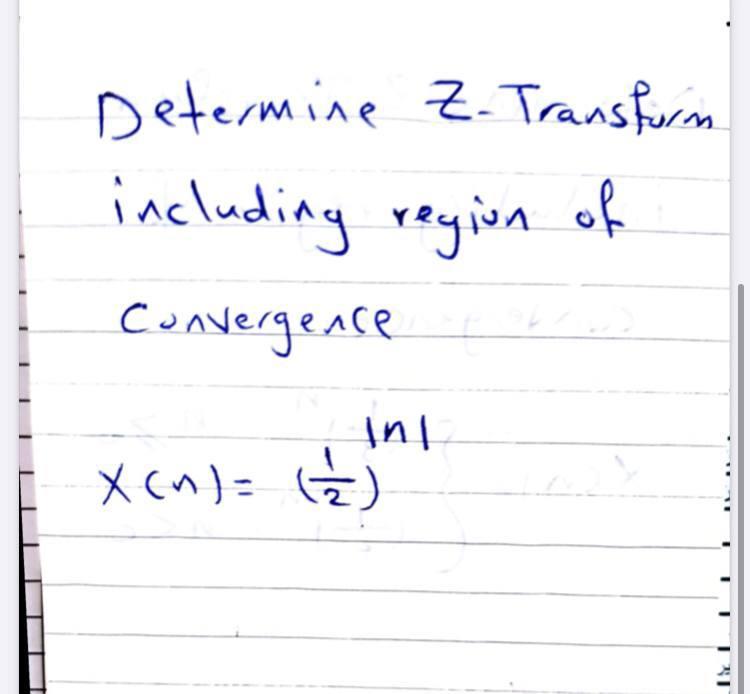 Determine Z-Transform
including region of
Convergence
x(n)= (1/2)^|n|